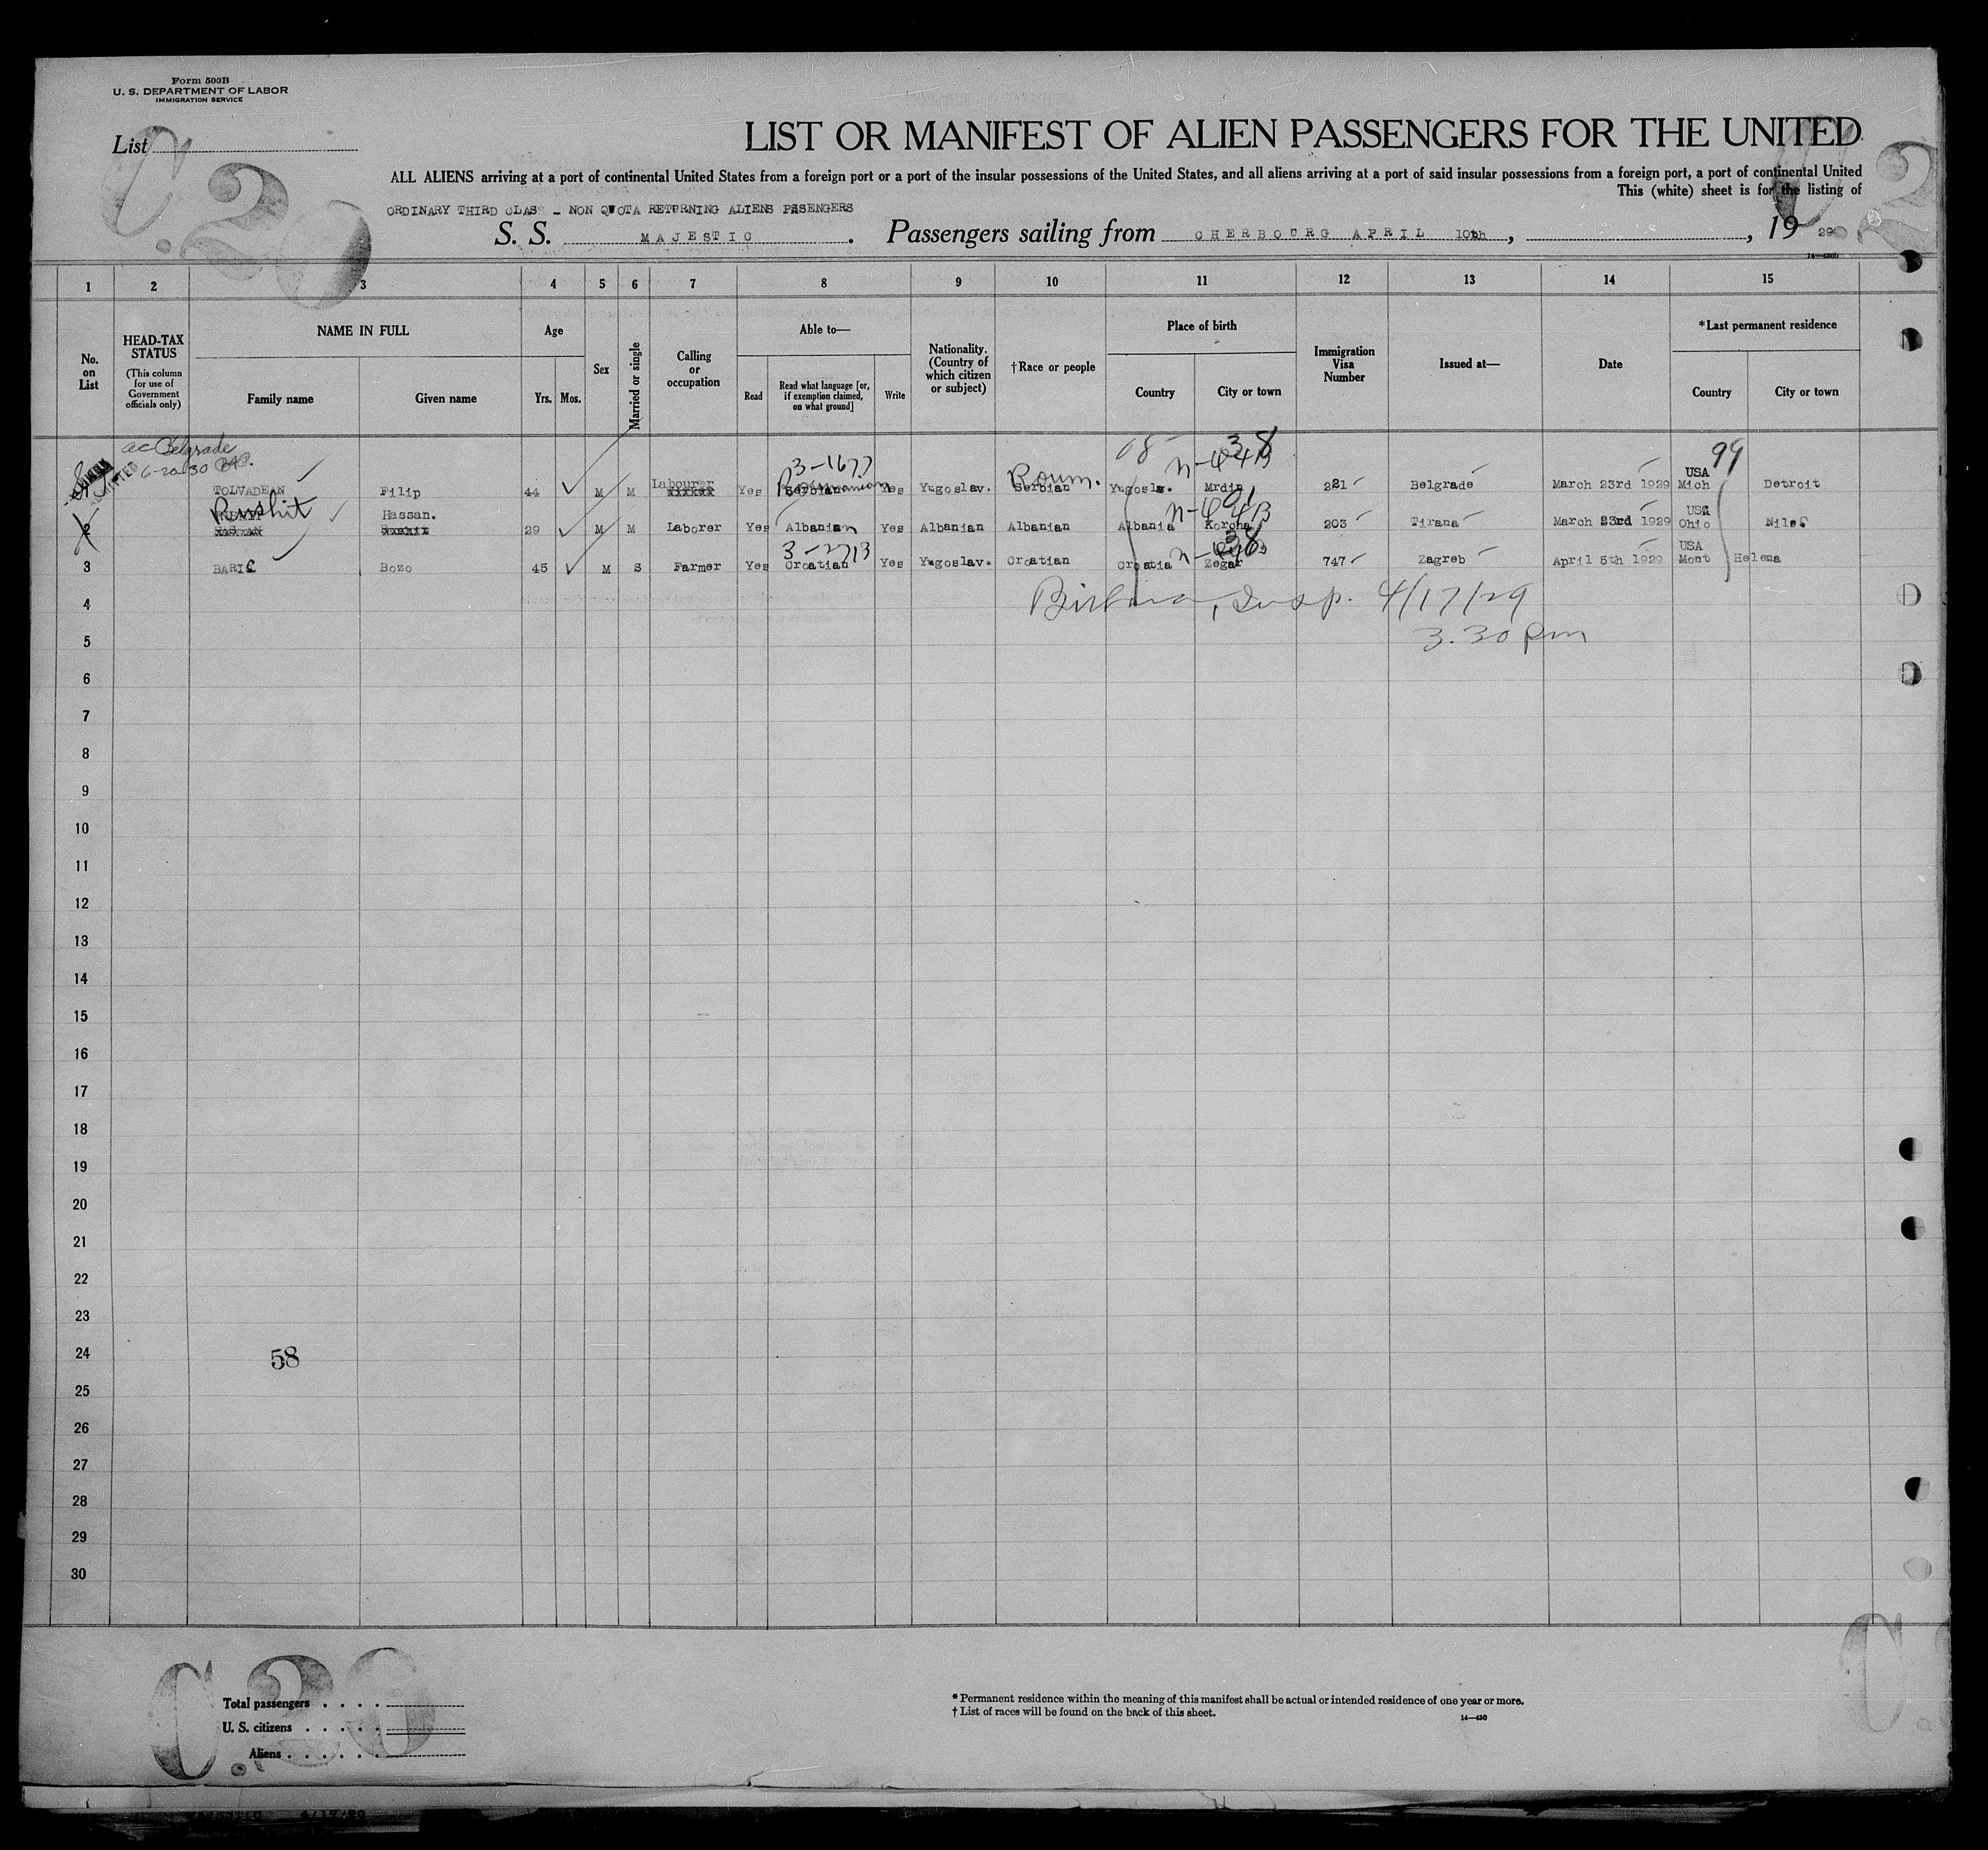 Form 500B
U. S. DEPARTMENT OF LABOR
IMMIGRATION SERVICE
List
C.20
LIST OR MANIFEST OF ALIEN PASSENGERS FOR THE UNITED
ALL ALIENS arriving at a port of continental United States from a foreign port or a port of the insular possessions of the United States, and all aliens arriving at a port of said insular possessions from a foreign port, a port of continental United
This (white) sheet is for the listing of
ORDINARY THIRD CLASS - NON QUOTA RETURNING ALIENS PASENGERS
S. S. MAJESTIC. Passengers sailing from CHERBOURG APRIL 10th, , 19 29
1 2 3 4 5 6 7 8 9 10 11 12 13 14 15
No. on List
HEAD-TAX STATUS
(This column for use of Government officials only)
NAME IN FULL
Family name
Given name
Age
Yrs. Mos.
Sex
Married or single
Calling or occupation
Able to—
Read
Read what language [or, if exemption claimed, on what ground]
Write
Nationality. (Country of which citizen or subject)
†Race or people
Place of birth
Country
City or town
Immigration Visa Number
Issued at—
Date
*Last permanent residence
Country
City or town
ac Belgrade
6-20-30
3-1677
Roum.
99
1 TOLVADEAN Filip 44 M M Labourer Yes Serbian Roumanian Yes Yugoslav. Serbian Yugosla. Mrdin 221 Belgrade March 23rd 1929 USA Mich Detroit
2 Rushit Hassan. 29 M M Laborer Yes Albanian Yes Albanian Albanian Albania Korcha 203 Tirana March 23rd 1929 USA Ohio Niles
3-2713
3 BARIC Bozo 45 M S Farmer Yes Croatian Yes Yugoslav. Croatian Croatia Zegar 747 Zagreb April 5th 1929 USA Mont Helena
4
Insp. 4/17/29
5
3.30 pm
6
7
8
9
10
11
12
13
14
15
16
17
18
19
20
21
22
23
24
58
25
26
27
28
29
30
C.20
Total passengers
U. S. citizens
Aliens
* Permanent residence within the meaning of this manifest shall be actual or intended residence of one year or more.
† List of races will be found on the back of this sheet.
14—430